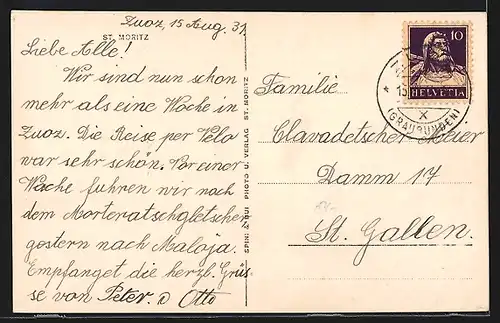 Zuoz, 15 Aug. 31.
ST. MORITZ
Liebe Alle!
Wir sind nun schon
mehr als eine Woche in
Zuoz. Die Reise per Velo
war sehr schön. Vor einer
Woche fuhren wir nach
dem Morteratschgletscher,
gestern nach Maloja.
Empfanget die herzl. Grüs-
se von Peter. & Otto
PHOTO U. VERLAG ST. MORITZ
10
HELVETIA
15
(GRAUBÜNDEN)
Familie
Clavadetscher Meier
Damm 17
St. Gallen.